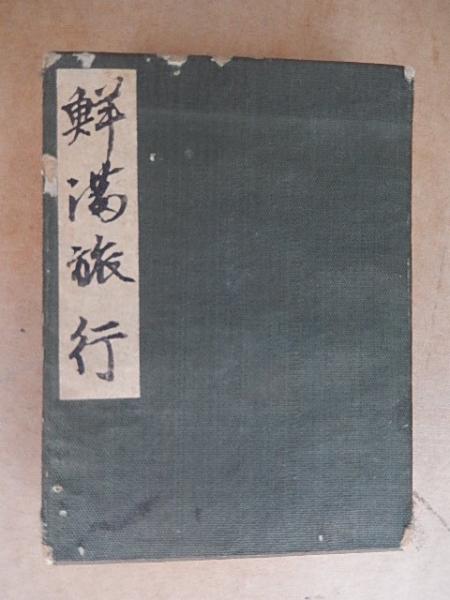 鮮満旅行